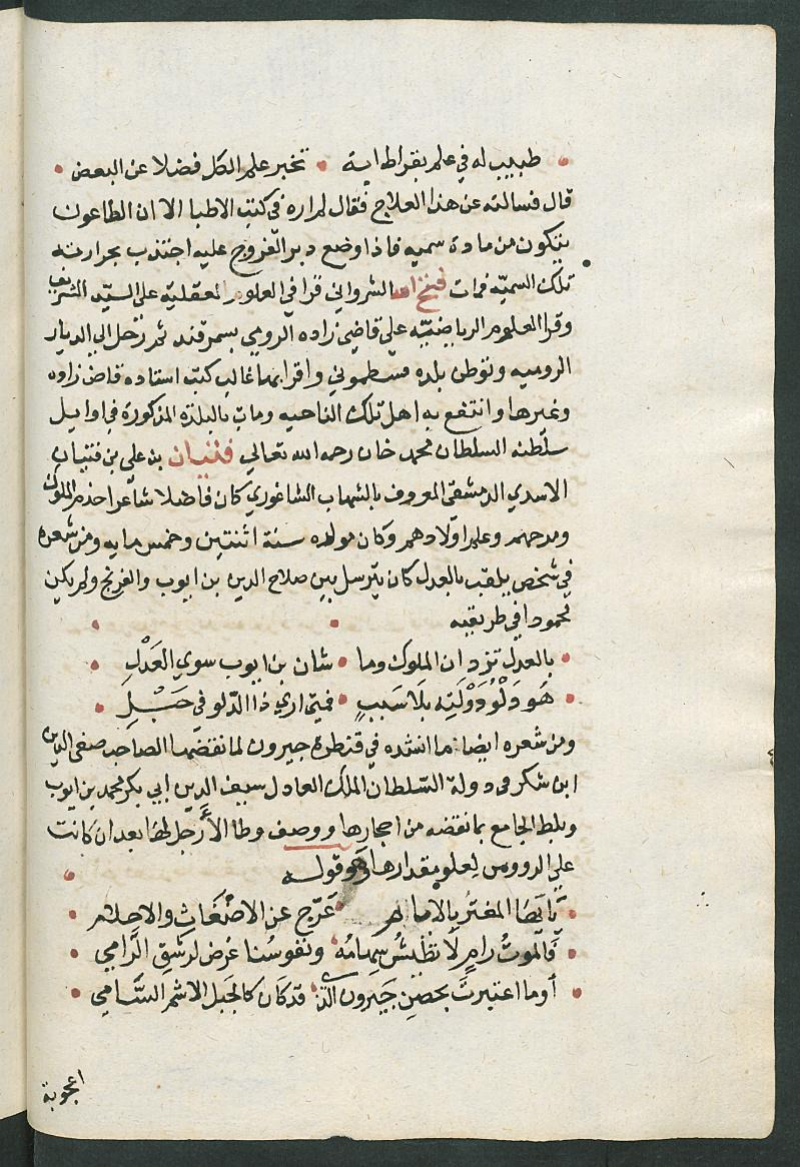 طبيب له في علم بقراط اية • تخبر علم الكل فضلا عن البعض
قال فسالته عن هذا العلاج فقال لم اره في كتب الاطبا الا ان الطاعون
يتكون من مادة سميه فاذا وضع دبر الفروج عليه اجتذب بحرارته
تلك السميّه فمات فتح الله الشرواني قرا في العلوم المعقليّه على السيّد الشريف
وقرا العلوم الرياضيّه على قاضي زاده الرومي بسمرقند ثم رحل الى الديار
الروميه وتوطن بلده قسطموني واقرا بها غالب كتب استاده قاضي زاده
وغيرها وانتفع به اهل تلك الناحيه ومات بالبلدة المذكورة في اوايل
سلطنه السلطان محمد خان رحمه الله تعالى فتيان بن علي بن فتيان
الاسدي الدمشقي المعروف بالشهاب الشاغوري كان فاضلا شاعرا خدم الملوك
ومدحهم وعلم اولادهم وكان مولده سنة اثنتين وخمس مايه ومن شعره
في شخص يلقب بالعدل كان يترسل بين صلاح الدين بن ايوب والفرنج ولم يكن
محمودا في طريقيه
بالعدل تزدان الملوك وما • شان بن ايوب سوى العَدْلِ
هُوَ دَلْوُ دَوْلَتِه بِلَا سَبَبٍ • فمتى ارى ذا الدّلو في حَبْلِ
ومن شعره ايضا ما انشده في قنطرة جيرون لما نقضها الصاحب صفي الدين
ابن شكر في دولة السّلطان الملك العادل سيف الدين ابي بكر محمد بن ايوب
وبلط الجامع بما نقضه من احجارها ووصف وطا الأرجل لها بعد ان كانت
على الرووس لعلو مقدارها وهو قوله
يَا اَيّهَا المغترُّ بالامال • عَرّج عن الاضْغَاثِ والاحلام
فَالموتُ رامٍ لَا تطيشُ سِهامُهُ • ونفوسُنا غرض لرشقِ الرَّامي
أوما اعتبرتَ بحصنِ جَيرون الّذي • قد كَان كالجبل الاشم السَّامي
اعجوبة